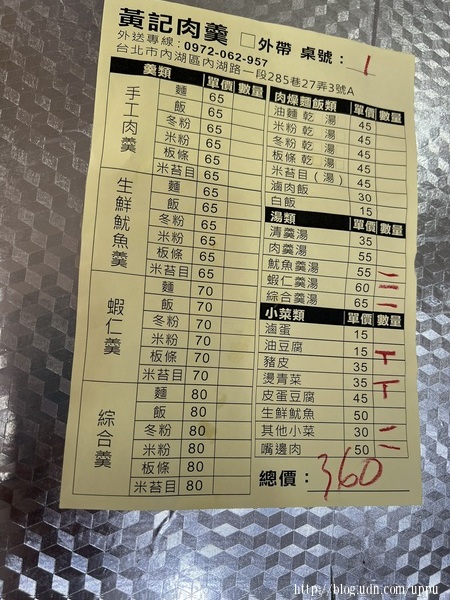 黃記肉羹 □外帶 桌號：1
外送專線：0972-062-957
台北市內湖區內湖路一段285巷27弄3號A
羹類 單價 數量
手工肉羹
麵 65
飯 65
冬粉 65
米粉 65
板條 65
米苔目 65
生鮮魷魚羹
麵 65
飯 65
冬粉 65
米粉 65
板條 65
米苔目 65
蝦仁羹
麵 70
飯 70
冬粉 70
米粉 70
板條 70
米苔目 70
綜合羹
麵 80
飯 80
冬粉 80
米粉 80
板條 80
米苔目 80
肉燥麵飯類 單價 數量
油麵 乾 湯 45
米粉 乾 湯 45
冬粉 乾 湯 45
板條 乾 湯 45
米苔目（湯） 45
滷肉飯 30
白飯 15
湯類 單價 數量
清羹湯 35
肉羹湯 55
魷魚羹湯 55
蝦仁羹湯 60
綜合羹湯 65
小菜類 單價 數量
滷蛋 15
油豆腐 15
豬皮 35
燙青菜 35
皮蛋豆腐 45
生鮮魷魚 50
其他小菜 30
嘴邊肉 50
總價：360
http://blog.udn.com/uppu